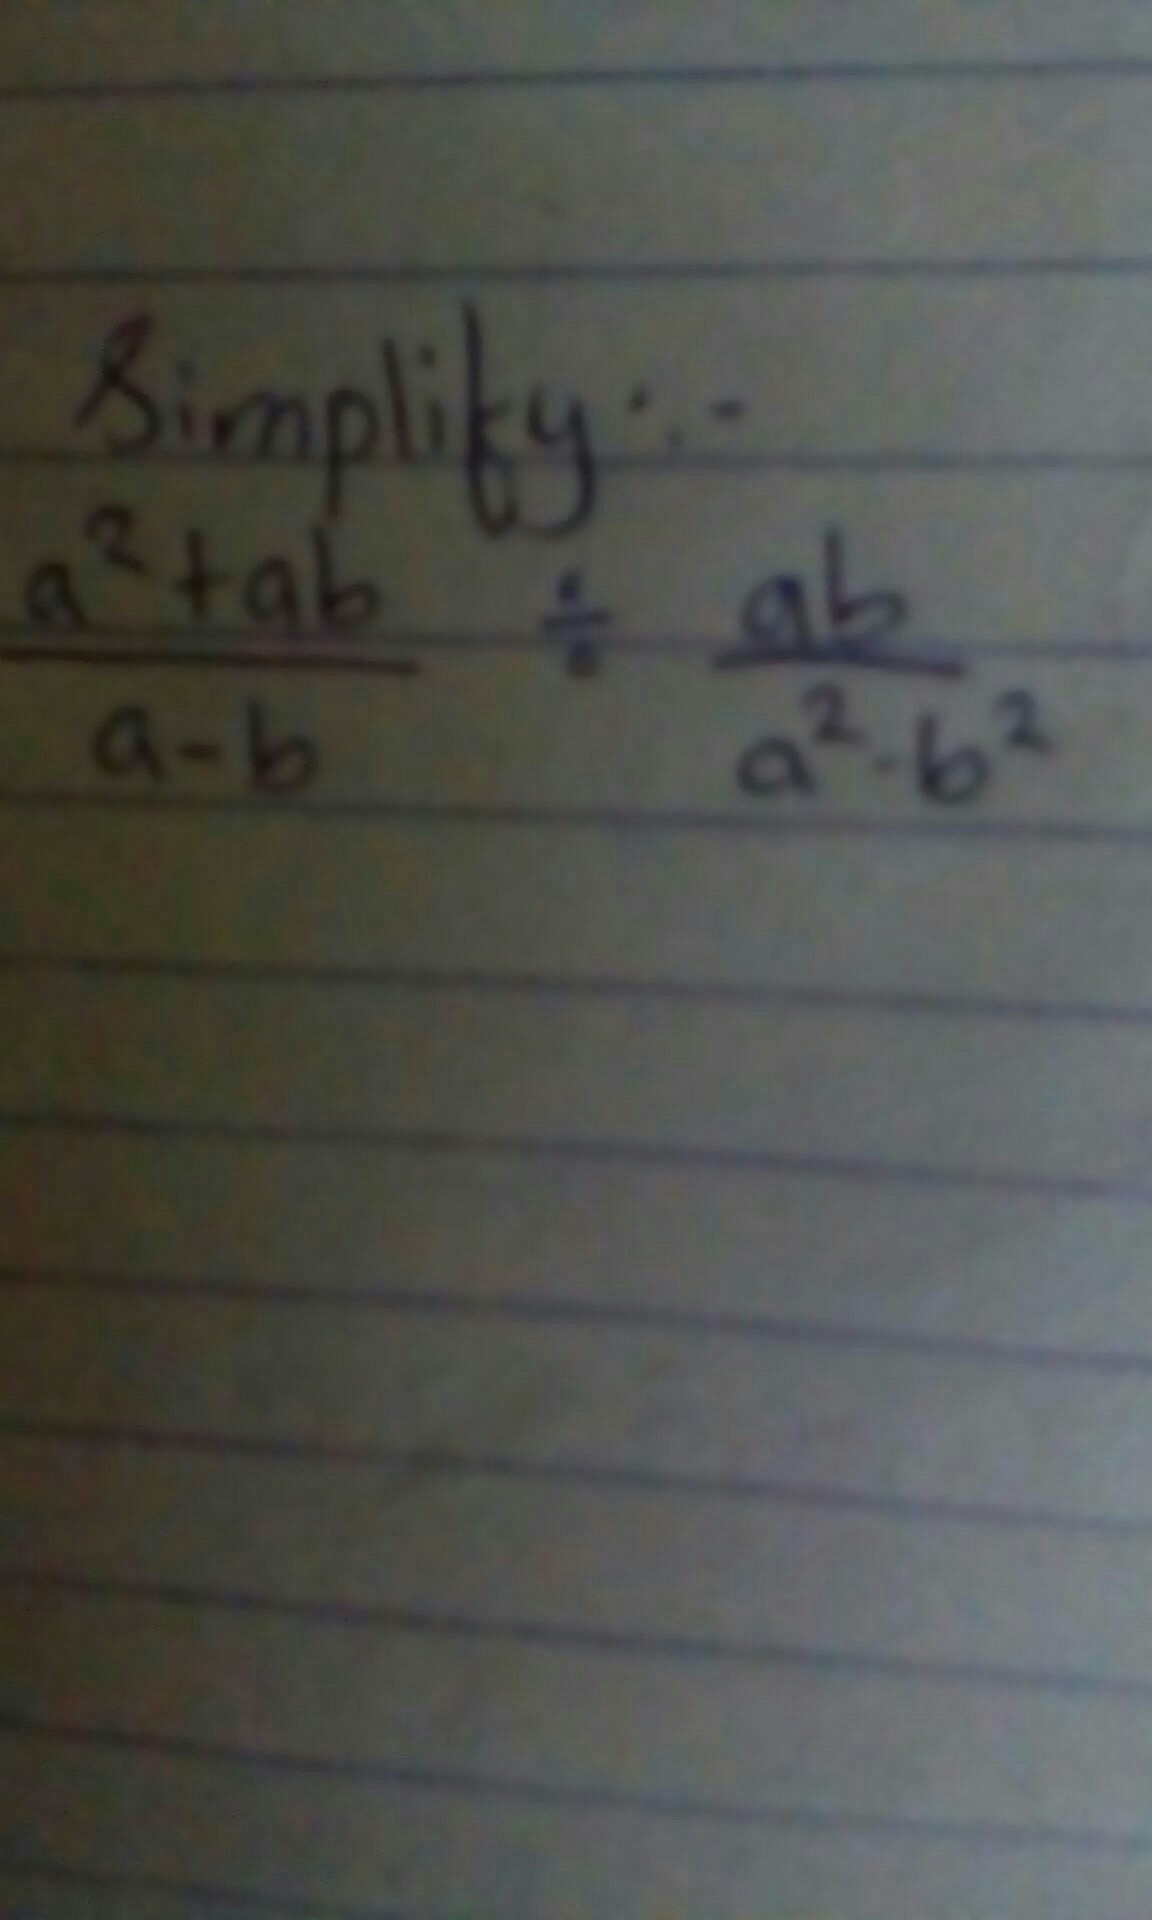 Simplify :-
a² + ab ÷ ab
a - b a² - b²